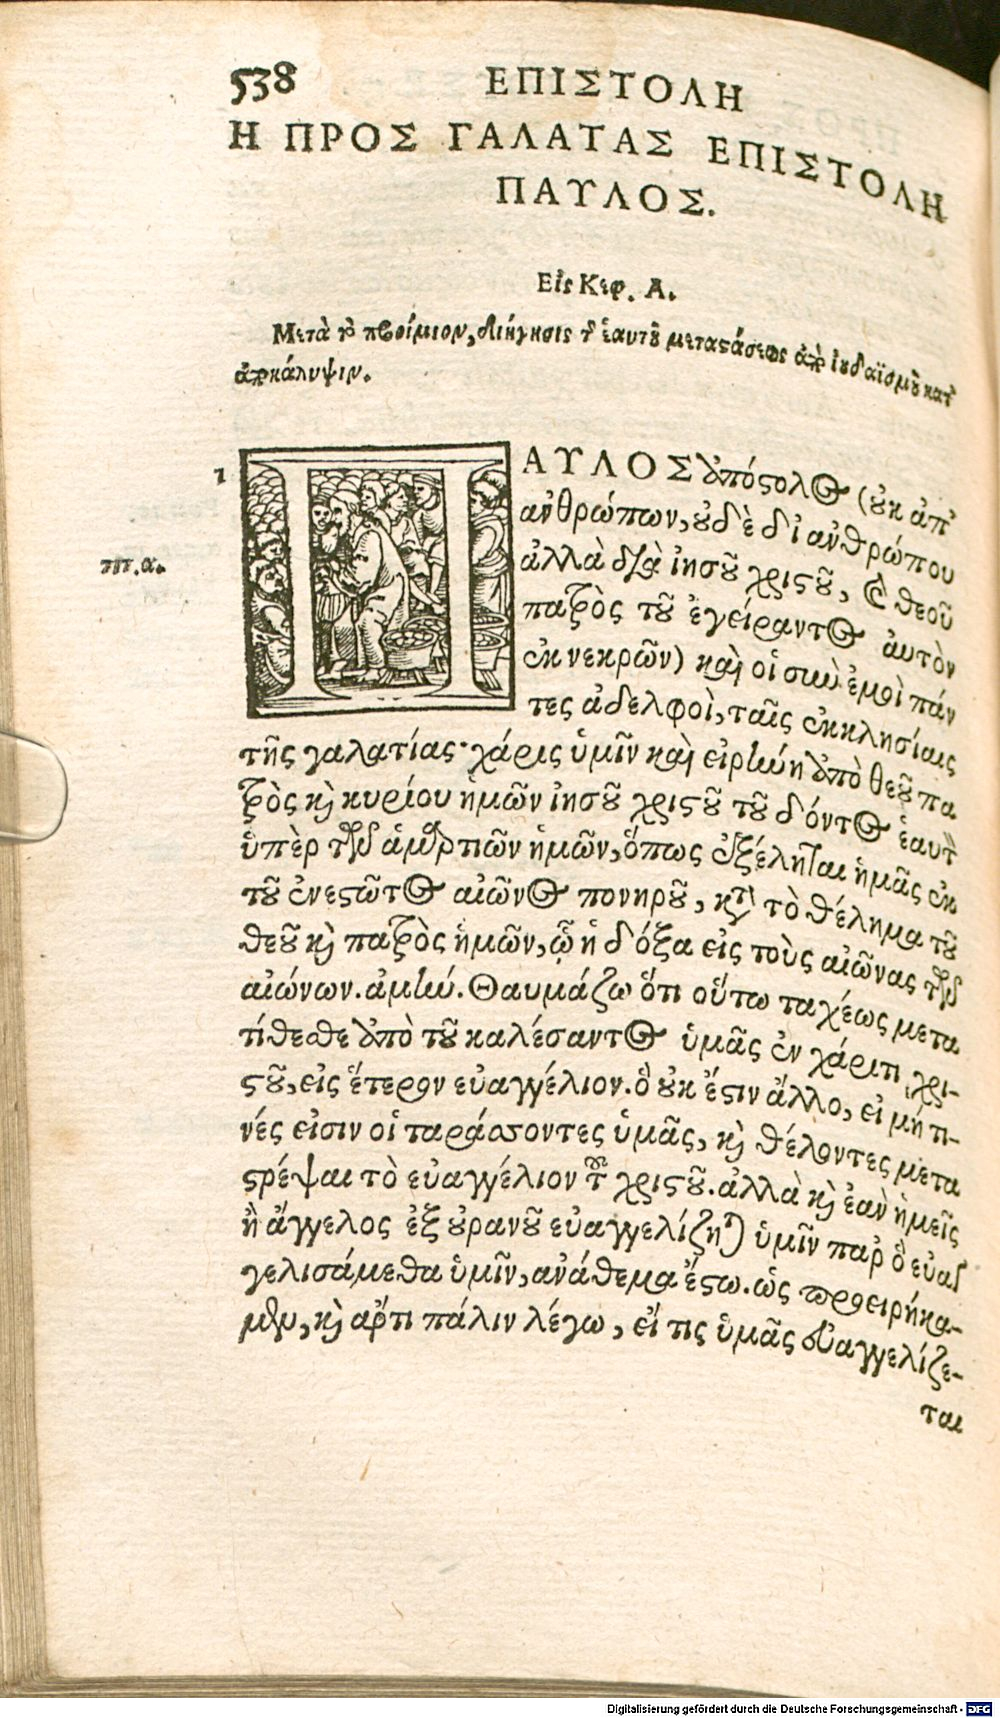 538 ΕΠΙΣΤΟΛΗ
Η ΠΡΟΣ ΓΑΛΑΤΑΣ ΕΠΙΣΤΟΛΗ
ΠΑΥΛΟΣ.
Εἰς Κεφ. Α.
Μετὰ τὸ προίμιον, διήγησις τ῀ ἑαυτοῦ μεταστάσεως ἀπὸ ἰουδαϊσμοῦ κατ᾽
ἀποκάλυψιν.
1 ΠΑΥΛΟΣ ἀπόστολος (οὐκ ἀπ᾽
ἀνθρώπων, οὐδὲ δι᾽ ἀνθρώπου
ππ.α. ἀλλὰ διὰ ἰησοῦ χριστοῦ, καὶ θεοῦ
πατρὸς τοῦ ἐγείραντος αὐτὸν
ἐκ νεκρῶν) καὶ οἱ σὺν ἐμοὶ πάν
τες ἀδελφοὶ, ταῖς ἐκκλησίαις
τῆς γαλατίας· χάρις ὑμῖν καὶ εἰρήνη ἀπὸ θεοῦ πα
τρὸς καὶ κυρίου ἡμῶν ἰησοῦ χριστοῦ τοῦ δόντος ἑαυτὸν
ὑπὲρ τῶν ἁμαρτιῶν ἡμῶν, ὅπως ἐξέληται ἡμᾶς ἐκ
τοῦ ἐνεστῶτος αἰῶνος πονηροῦ, κατὰ τὸ θέλημα τοῦ
θεοῦ καὶ πατρὸς ἡμῶν, ᾧ ἡ δόξα εἰς τοὺς αἰῶνας τῶν
αἰώνων. ἀμήν. Θαυμάζω ὅτι οὕτω ταχέως μετα
τίθεσθε ἀπὸ τοῦ καλέσαντος ὑμᾶς ἐν χάριτι χρι-
στοῦ, εἰς ἕτερον εὐαγγέλιον. ὃ οὐκ ἔστιν ἄλλο, εἰ μή τι-
νές εἰσιν οἱ ταράσσοντες ὑμᾶς, καὶ θέλοντες μετα
στρέψαι τὸ εὐαγγέλιον τοῦ χριστοῦ. ἀλλὰ καὶ ἐὰν ἡμεῖς
ἢ ἄγγελος ἐξ οὐρανοῦ εὐαγγελίζηται ὑμῖν παρ᾽ ὃ εὐαγ
γελισάμεθα ὑμῖν, ἀνάθεμα ἔστω. ὡς προειρήκα-
μεν, καὶ ἄρτι πάλιν λέγω, εἴ τις ὑμᾶς εὐαγγελίζε-
ται
Digitalisierung gefördert durch die Deutsche Forschungsgemeinschaft - DFG